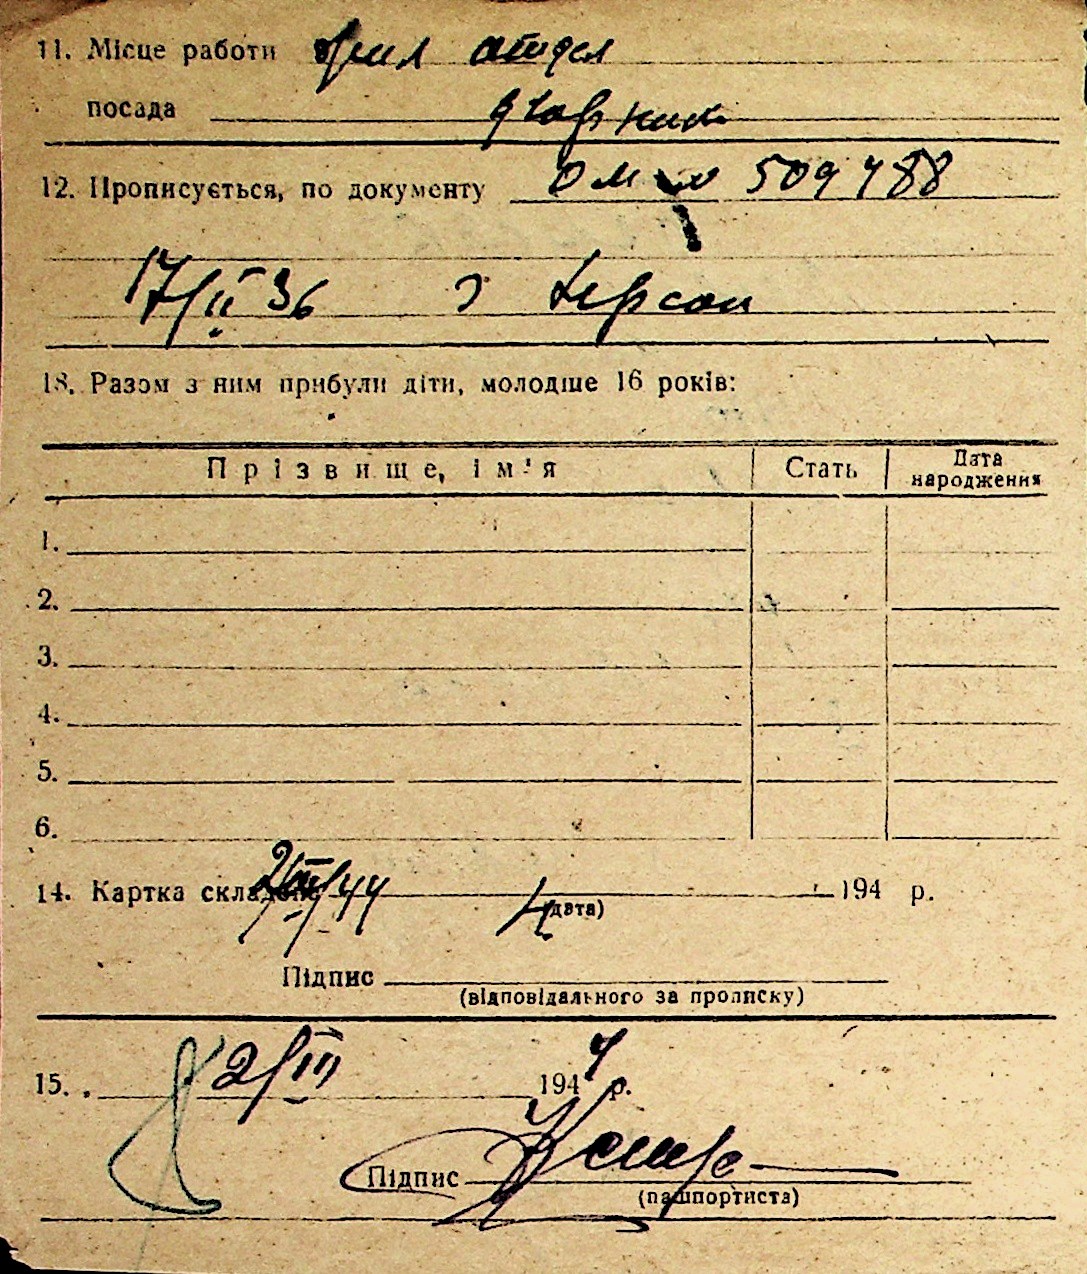 11. Місце работи жил отдел
посада дворник
12. Прописується, по документу ОМ № 509488
17/II 36 г Херсон
13. Разом з ним прибули діти, молодше 16 років:
Прізвище, ім'я Стать Дата народження
1.
2.
3.
4.
5.
6.
14. Картка складена 2/III/44 194 р.
(дата)
Підпис
(відповідального за прописку)
15. 2/III 1944 р.
Підпис
(пашпортиста)